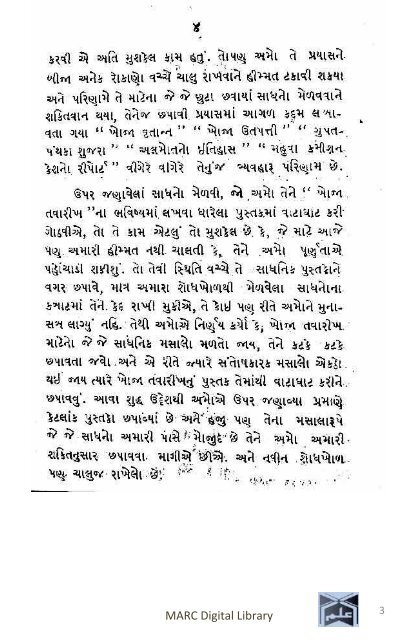 ૪
કરવી એ અતિ મુશકેલ કામ હતું. તોપણ અમો તે પ્રયાસને
બીજા અનેક રોકાણો વચ્ચે ચાલુ રાખવાને હીમ્મત ટકાવી શક્યા
અને પરિણામે તે માટેના જે જે છુટા છવાયાં સાધનો મેળવવાને
શક્તિવાન થયા, તેનેજ છપાવી પ્રયાસમાં આગળ કદમ લખા-
વતા ગયા “ ખોજા વૃતાન્ત ” “ ખોજા ઉત્પત્તી ” “ ગુપત-
પંથકા શુજરા ” “ અલમોતનો ઈતિહાસ ” “ મહુવા કમીશન
કેશનો રીપોર્ટ ” વીગેરે વીગેરે તેનુંજ વ્યવહારૂ પરિણામ છે.
ઉપર જણાવેલાં સાધનો મેળવી, જો અમો તેને “ ખોજા
તવારીખ ”ના ભવિષ્યમાં લખવા ધારેલા પુસ્તકમાં વાટાઘાટ કરી
ગોઠવીએ, તો તે કામ એટલું તો મુશકેલ છે કે, જે માટે આજે
પણ અમારી હીમ્મત નથી ચાલતી કે, તેને અમો પૂર્ણતાએ
પહોંચાડી શકીશું. તો તેવી સ્થિતિ વચ્ચે તે સાધનિક પુસ્તકોને
વગર છપાવે, માત્ર અમારા શોધખોળથી મેળવેલા સાધનોના
કબાટમાં તેને કેદ રાખી મુકીએ, તે કોઈ પણ રીતે અમોને મુના-
સબ લાગ્યું નહિ. તેથી અમોએ નિર્ણય કર્યો કે, ખોજા તવારીખ
માટેનો જે જે સાધનિક મસાલો મળતો જાય, તેને કટકે કટકે
છપાવતા જવો. અને એ રીતે જ્યારે સંતોષકારક મસાલો એકઠો
થઈ જાય ત્યારે ખોજા તવારીખનું પુસ્તક તેમાંથી વાટાઘાટ કરીને
છપાવવું. આવા શુદ્ધ ઉદેશથી અમોએ ઉપર જણાવ્યા પ્રમાણે
કેટલાંક પુસ્તકો છપાવ્યાં છે અને હજી પણ તેના મસાલારૂપે
જે જે સાધનો અમારી પાસે મોજુદ છે તેને અમો અમારી
શક્તિનુસાર છપાવવા માગીએ છીએ. અને નવીન શોધખોળ
પણ ચાલુજ રાખેલો છે.
MARC Digital Library
3